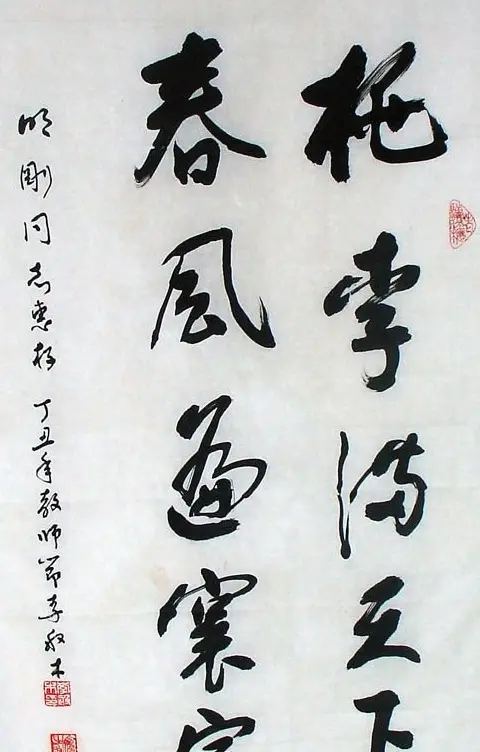 桃李满天下
春风遍寰宇
明刚同志惠存 丁丑年教师节 李